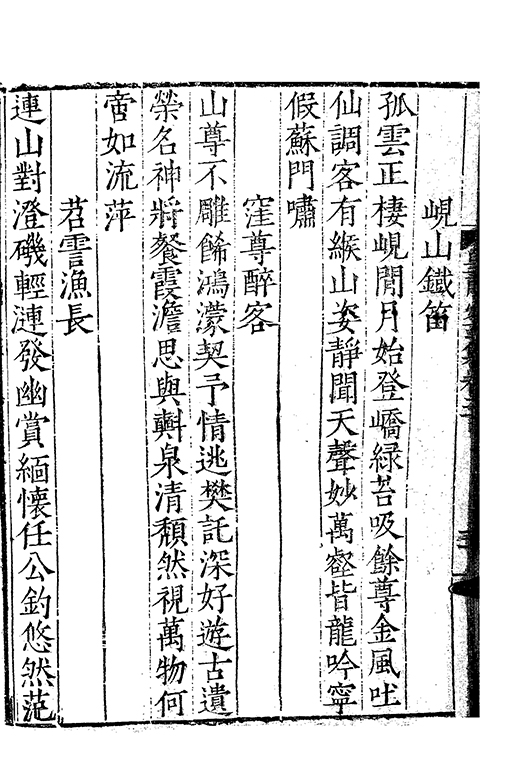 峴山鐵笛
孤雲正棲峴閒月始登嶠綠苔吸餘尊金風吐
仙調客有緱山姿靜聞天聲妙萬壑皆龍吟寧
假蘇門嘯
窪尊醉客
山尊不雕餙鴻濛契予情逃樊託深好遊古遺
榮名神將餐霞澹思與㪺泉清頹然視萬物何
啻如流萍
苕霅漁長
連山對澄磯輕漣發幽賞緬懷任公釣悠然茫